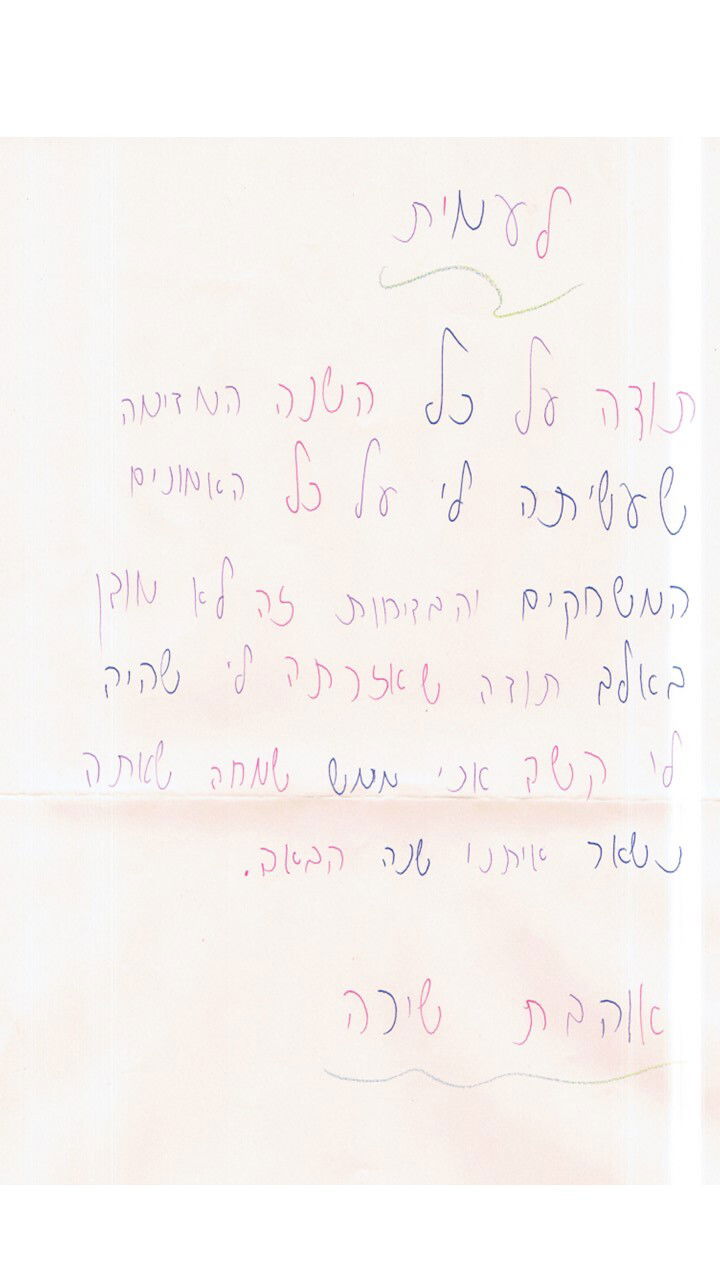 לעמית
תודה על כל השנה המדימה
שעשיתה לי על כל האמונים
המשחקים והבדיחות זה לא מובן
באלב תודה שאזרתה לי שהיה
לי קשב אני ממש שמחה שאתה
נשאר איתנו שנה הבאב.
אוהבת שירה